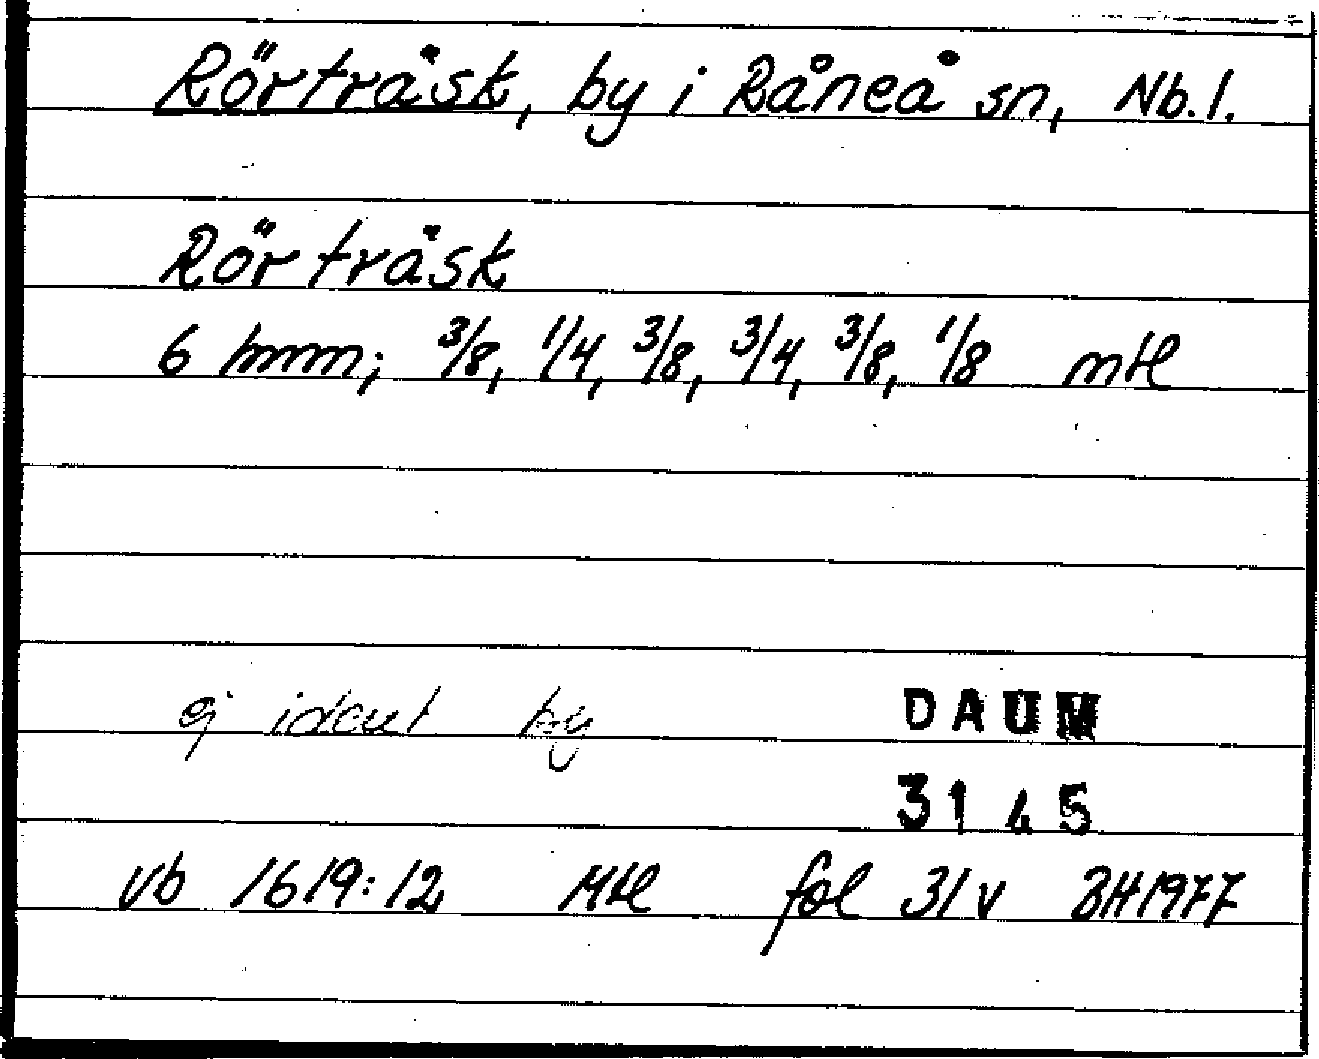 Rörträsk, by i Råneå sn, Nb. l.
Rörträsk
6 hmm; 3/8, 1/4, 3/8, 3/4, 3/8, 1/8 mtl
ej ident by
DAUM
3145
vb 1619:12 Mtl fol 31v BH1977